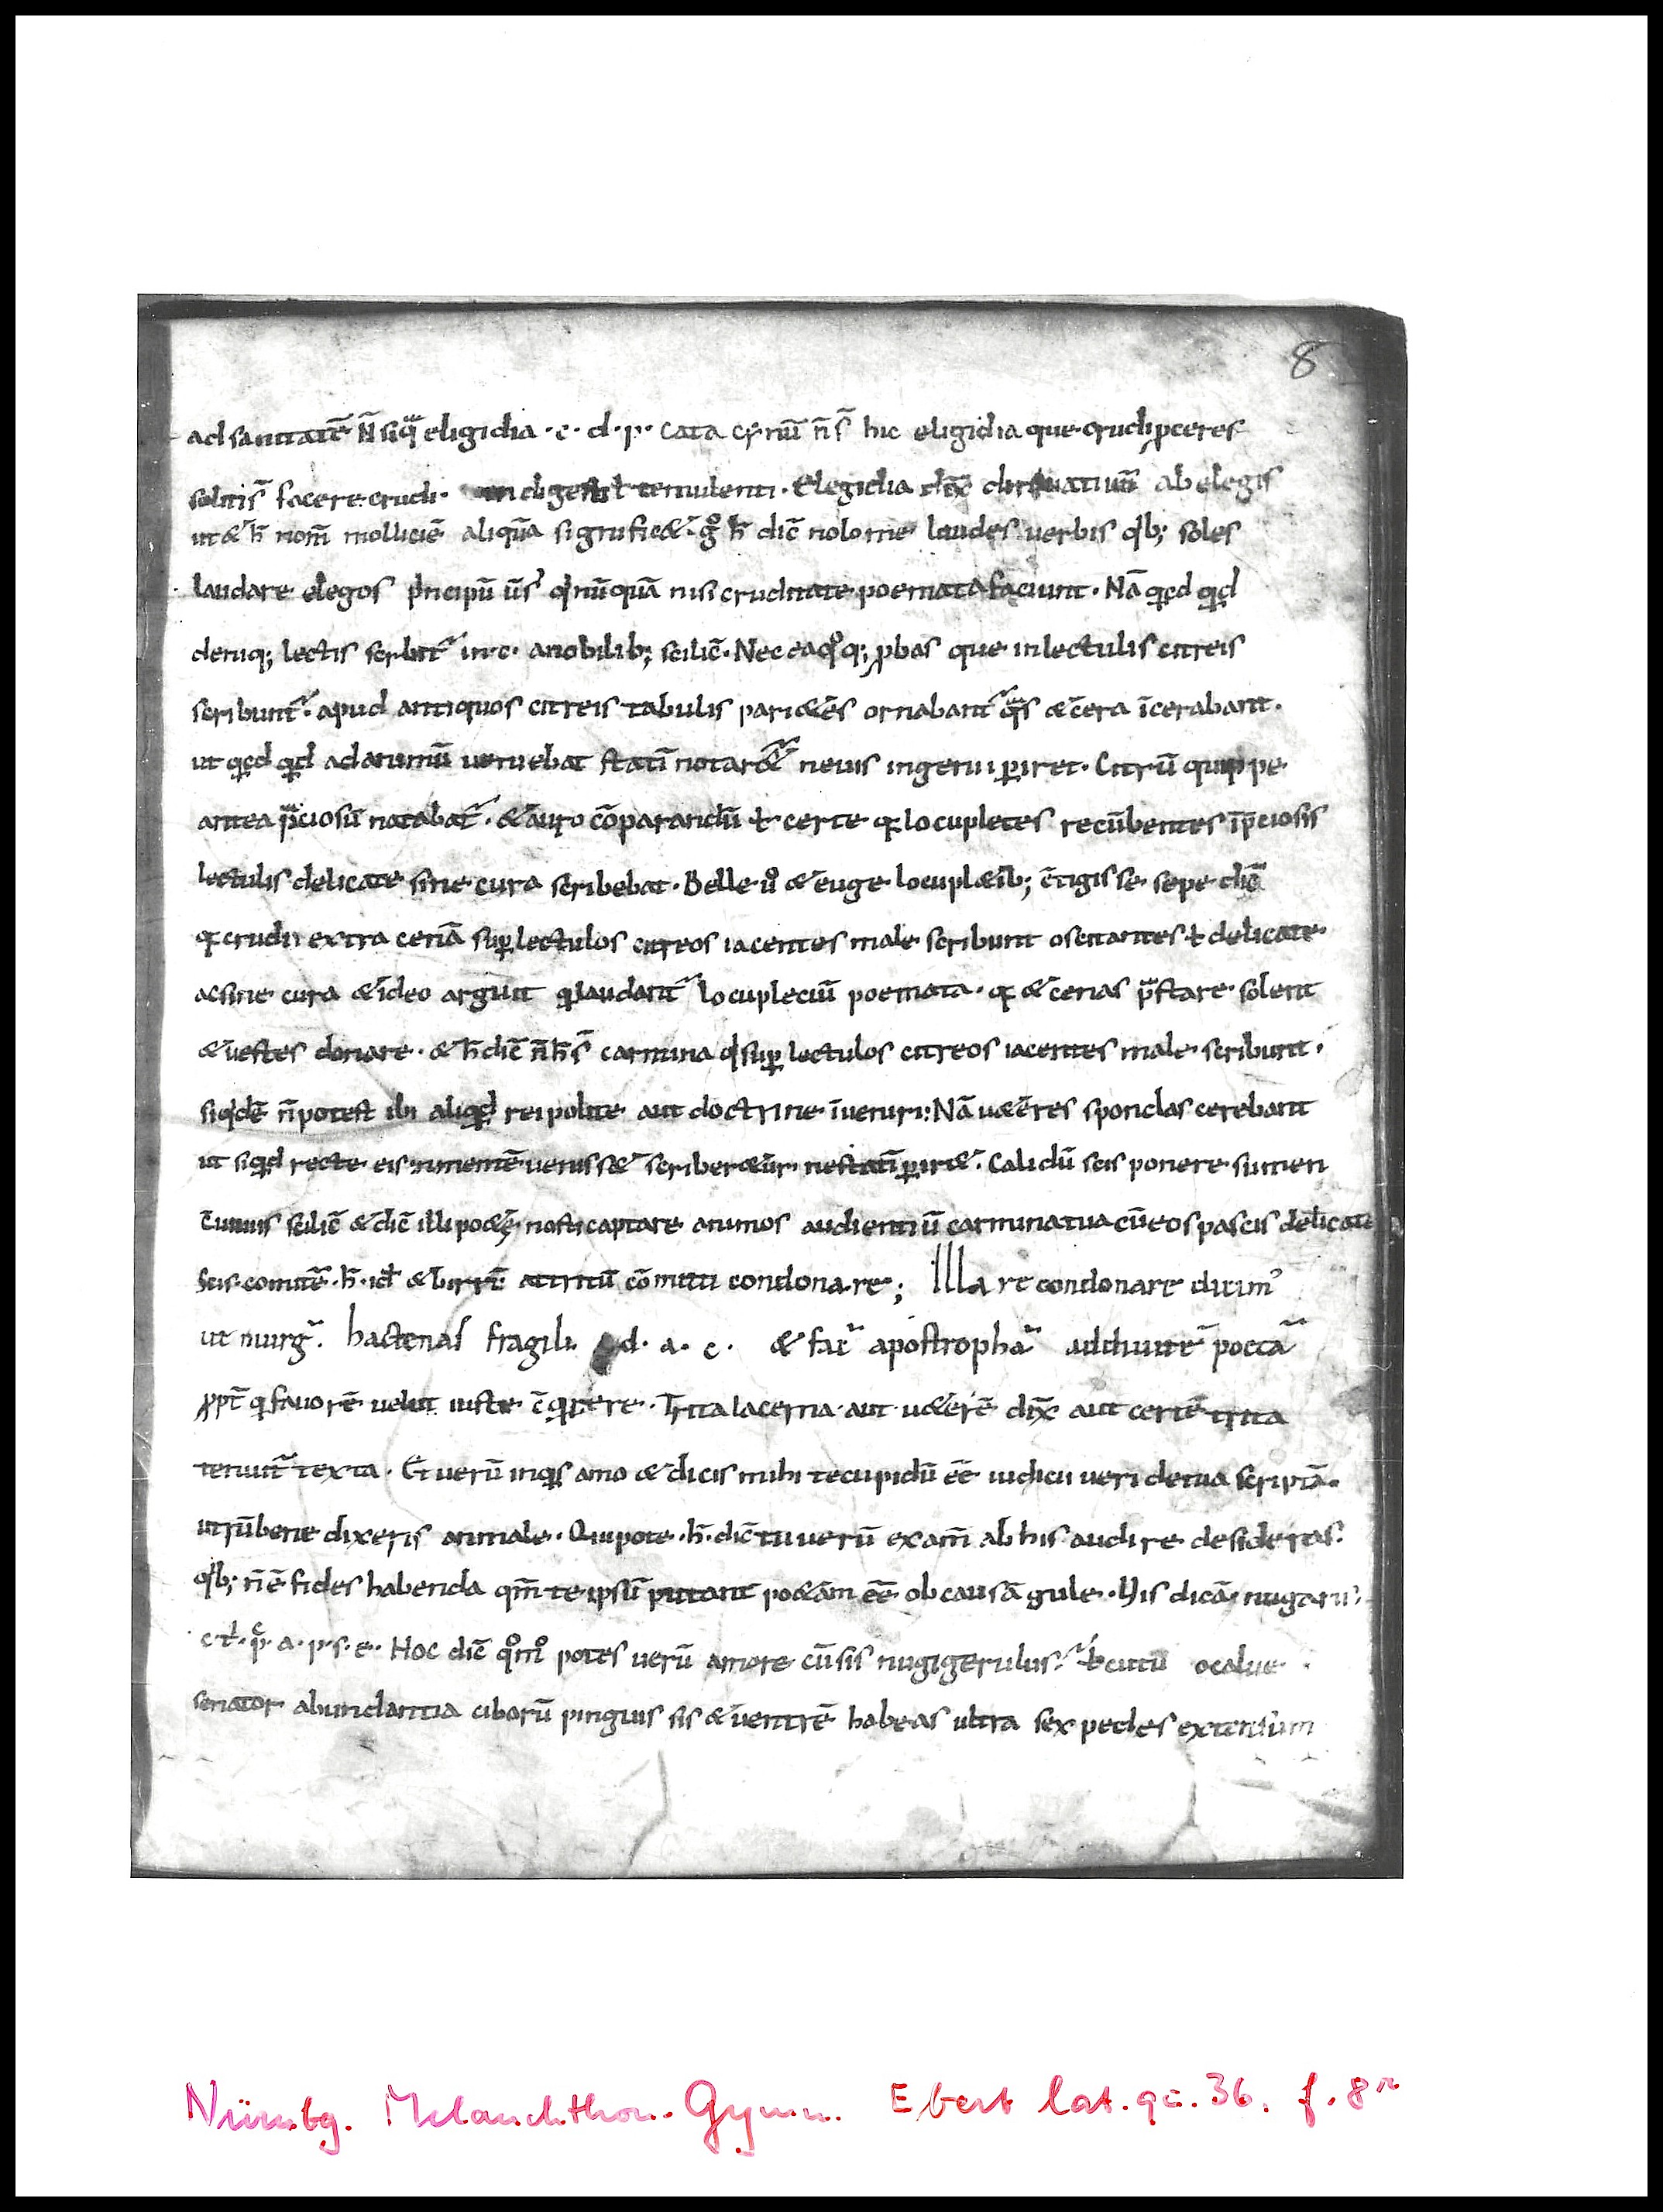 8
ad sanitatē N̄ siq̄ eligidia · c · d · p · Cata cȳnū n̄ s̄ hic eligidia que crudi ꝓceres
solitis̄ facere crudi · indigesti ł temulenti · Elegidia dix̄ ab elegis
ut & h̄ nom̄ molliciē aliquā significæ · gͦ h̄ dic̄ nolo me laudes uerbis qib; soles
laudare elegos principū ūs̄ qi nūquā nisi cruditate poemata faciunt · Nā qicqd qid
deniq; lectis scribit᷑ in · c · a nobilib; scilic̄ · Nec ea qͦq; ꝓbas que in lectulis citreis
scribunt᷑ · apud antiquos citreis tabulis pari&es ornabant᷑ q̄s & cera īcerabant ·
ut qicqd qid ad animū ueniebat statī notar&᷑ ne uis ingenii ꝑiret · Citrū quippe
antea p̄ciosū notabat᷑ · & auro cōparandū ł certe qꝛ locupletes recūbentes ī p̄ciosis
lectulis delicate sine cura scribebat · Belle uͦ & euge locupl&ib; c̄tigisse sepe dic̄
qꝛ crudi extra cenā suꝑ lectulos citreos iacentes male scribunt oscitantes ł delicate
ac sine cura & ideo arguit qi laudant᷑ locupleciū poemata · qꝛ & cenas p̄stare solent
& uestes donare · & h̄ dic̄ n̄ h̄ s̄ carmina qi suꝑ lectulos citreos iacentes male scribunt ·
siqidē n̄ potest ibi aliqid rei polite aut doctrine īueniri: Nā u&eres spondas cerebant
ut siqid recte eis in mentē uenisse& scriber&ur · ne statī ꝑir& · Calidū scis ponere sumen
c̄uiuis scilic̄ & dic̄ illi po&ę nosti captare animos audientiū carmina tua cū eos pascis delicate
Scis comitē · h̄ · id & birrū attritū cōmiti condonare; Illa re condonare dicim᷒
ut nurg᷑. hactenas fragili d · a · c · & fac̄ apostropha᷑ ad diuitē poeta᷑
ꝓpt̄ qi fauorē uelut iuste c̄qirere · Trita lacerna aut u&erē dix̄ aut certē trita
tenuit᷑ texta · Et uerū inqis amo & dicis mihi te cupidū ēē iudicii ueri de tua scriptā ·
utrū bene dixeris an male · Qui pote · h̄ · dic̄ tu uerū exam̄ ab his audire desideras ·
qib; n̄ ē fides habenda qm̄ te ipsū putant po&ām ēē ob causā gule · His dicā · nugaris ·
c t · p̄ · a · p · s · e · Hoc dic̄ qͦmͦ potes uerū amare cū sis nugigerulus · ł cutū o calue ·
senator abundantia ciborū pinguis sis & uentrē habeas ultra sex pedes extensum
Nürnbg. Melanchthon-Gymn. Ebert lat. qu. 36. f. 8r